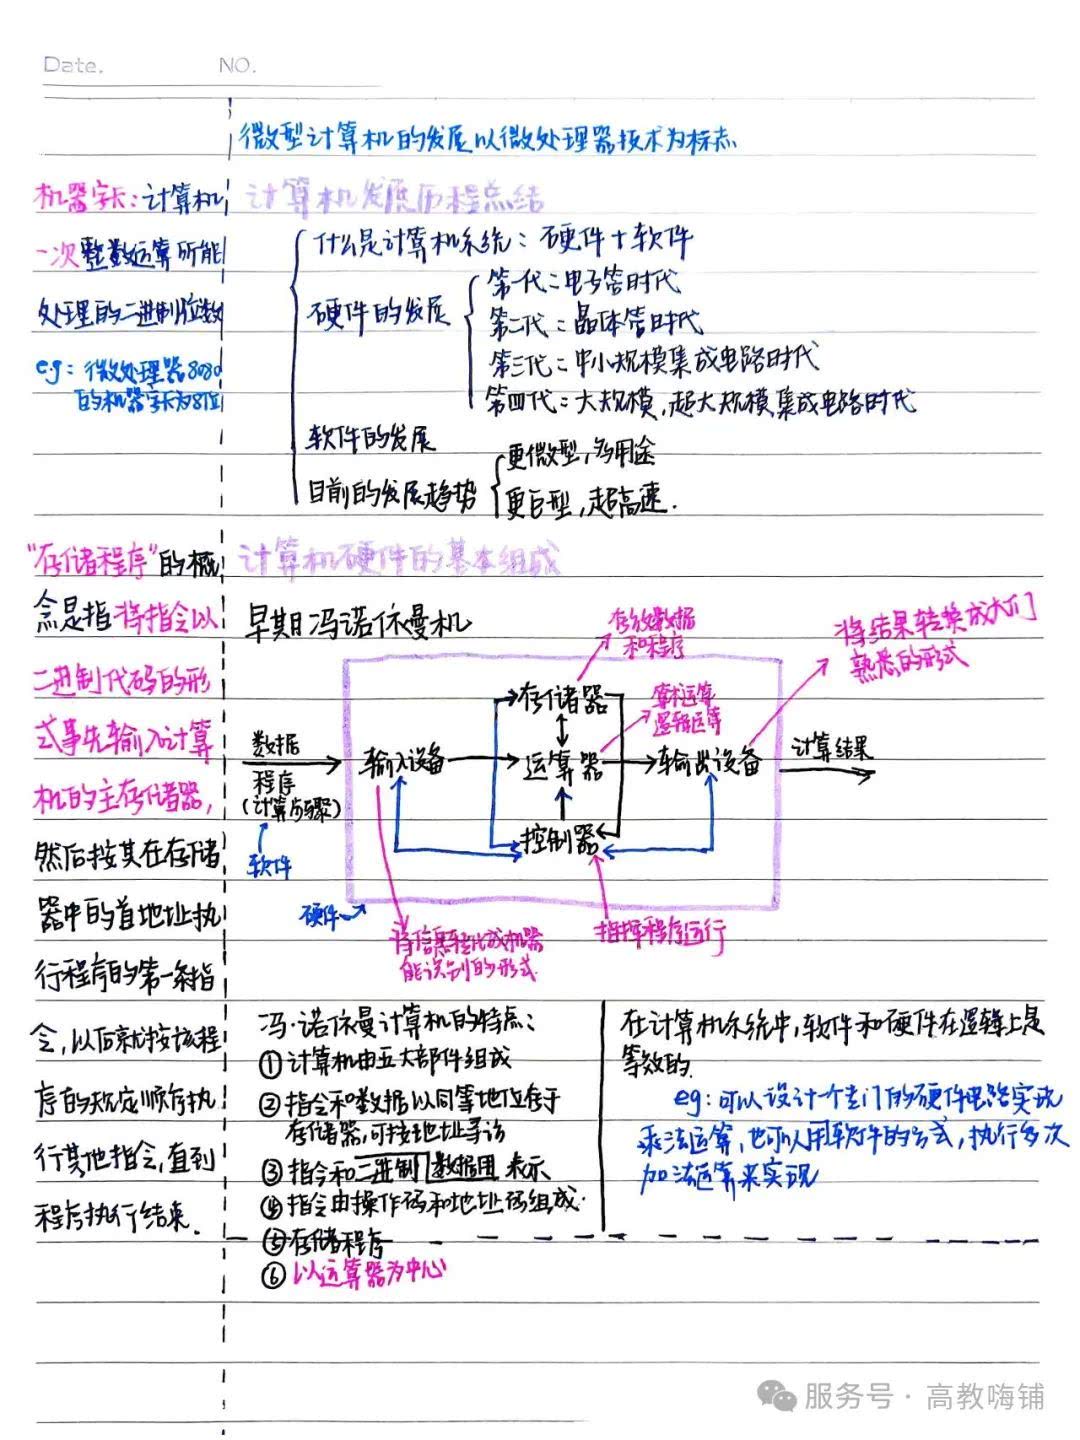 Date.
NO.
微型计算机的发展以微处理器技术为标志
机器字长：计算机
一次整数运算所能
处理的二进制位数
eg：微处理器8080
的机器字长为8位
计算机发展历程总结
什么是计算机系统：硬件+软件
硬件的发展
第一代：电子管时代
第二代：晶体管时代
第三代：中小规模集成电路时代
第四代：大规模,超大规模集成电路时代
软件的发展
目前的发展趋势
更微型,多用途
更巨型,超高速.
"存储程序"的概
念是指将指令以
二进制代码的形
式事先输入计算
机的主存储器,
然后按其在存储
器中的首地址执
行程序的第一条指
令,以后就按该程
序的规定顺序执
行其他指令,直到
程序执行结束.
计算机硬件的基本组成
早期冯诺依曼机
存放数据
和程序
将结果转换成人们
熟悉的形式
存储器
算术运算
逻辑运算
数据
程序
(计算步骤)
软件
输入设备
运算器
输出设备
计算结果
控制器
硬件
将信息转化成机器
能识别的形式
指挥程序运行
冯·诺依曼计算机的特点：
①计算机由五大部件组成
②指令和数据以同等地位存于
存储器,可按地址寻访
③指令和二进制数据用表示
④指令由操作码和地址码组成.
⑤存储程序
⑥以运算器为中心
在计算机系统中,软件和硬件在逻辑上是
等效的.
eg：可以设计一个专门的硬件电路实现
乘法运算,也可以用软件的方式,执行多次
加法运算来实现
服务号·高教嗨铺